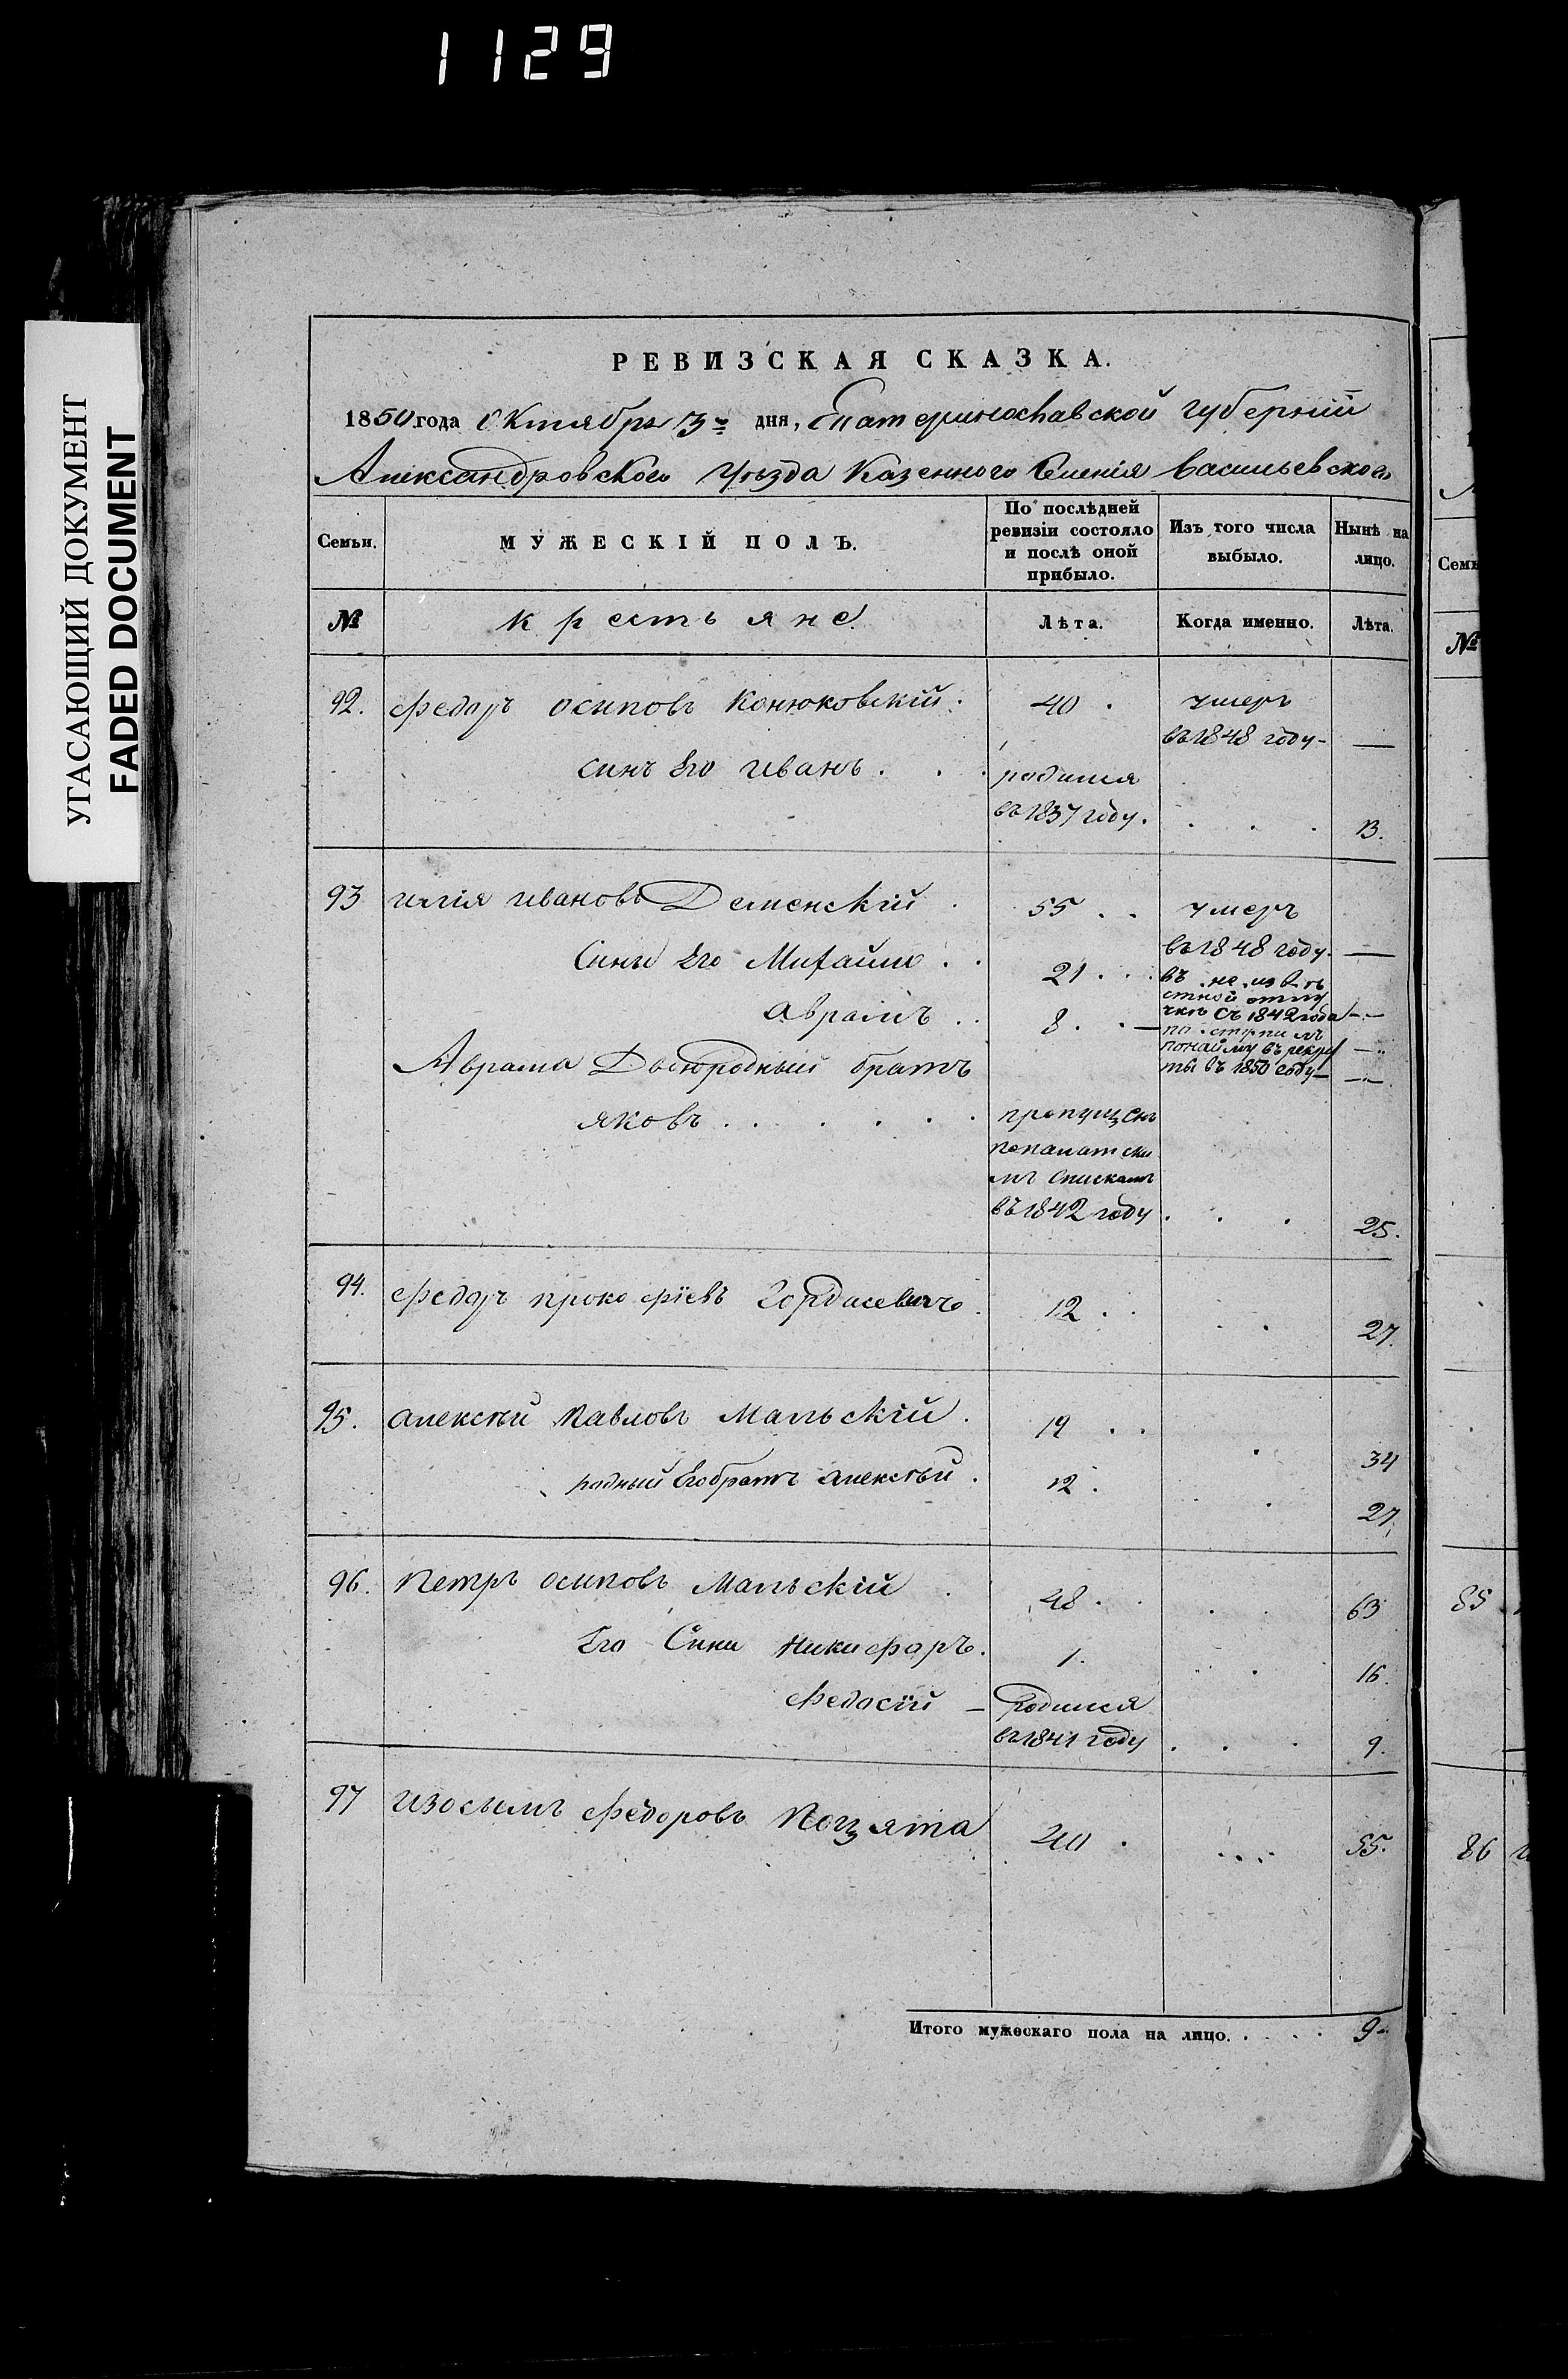 1129
УГАСАЮЩИЙ ДОКУМЕНТ
FADED DOCUMENT
РЕВИЗСКАЯ СКАЗКА.
1850 года Октября 3го дня, Екатеринославской губерніи
Александровского уѣзда Казенного Селенія Васильевского
Семьи. МУЖЕСКІЙ ПОЛЪ. По послѣдней ревизіи состояло и послѣ оной прибыло. Изъ того числа выбыло. Нынѣ на лицо.
№ крестьяне. Лѣта. Когда именно. Лѣта.
92. Федоръ осиповъ Конюковскій. 40. умеръ
въ 1848 году — —
синъ Его иванъ . . . родился
въ 1837 году. . . . 13.
93 илія ивановъ Деменскій . 55 . . умеръ
въ 1848 году. —
Сини Его Михайло . . 21 . . . въ не извѣ
стной отлу
чкѣ съ 1842 года — —
авраамъ . . 8. . — поступилъ
понайму въ рекру —
ты въ 1850 году — —
Аврама Двоюродный братъ
яковъ . . . . . . пропущенъ
попалатски
мъ Спискамъ
въ 1842 году . . . 25.
94. Федоръ прокофіевъ 12 . . . 27.
95. алексѣй павловъ Мальскій . 19 . . . 34
родный Его братъ алексѣй . 12. . . 27.
96. Петръ осиповъ Мальскій . 48. . . . 63
Его Сини Никифаръ. 1. . . 16.
Федосій — Родился
въ 1841 году . . . 9.
97 изосимъ Федоровъ 40 . . . . 55.
Итого мужескаго пола на лицо. . . . . 9
Семь
№
85
86